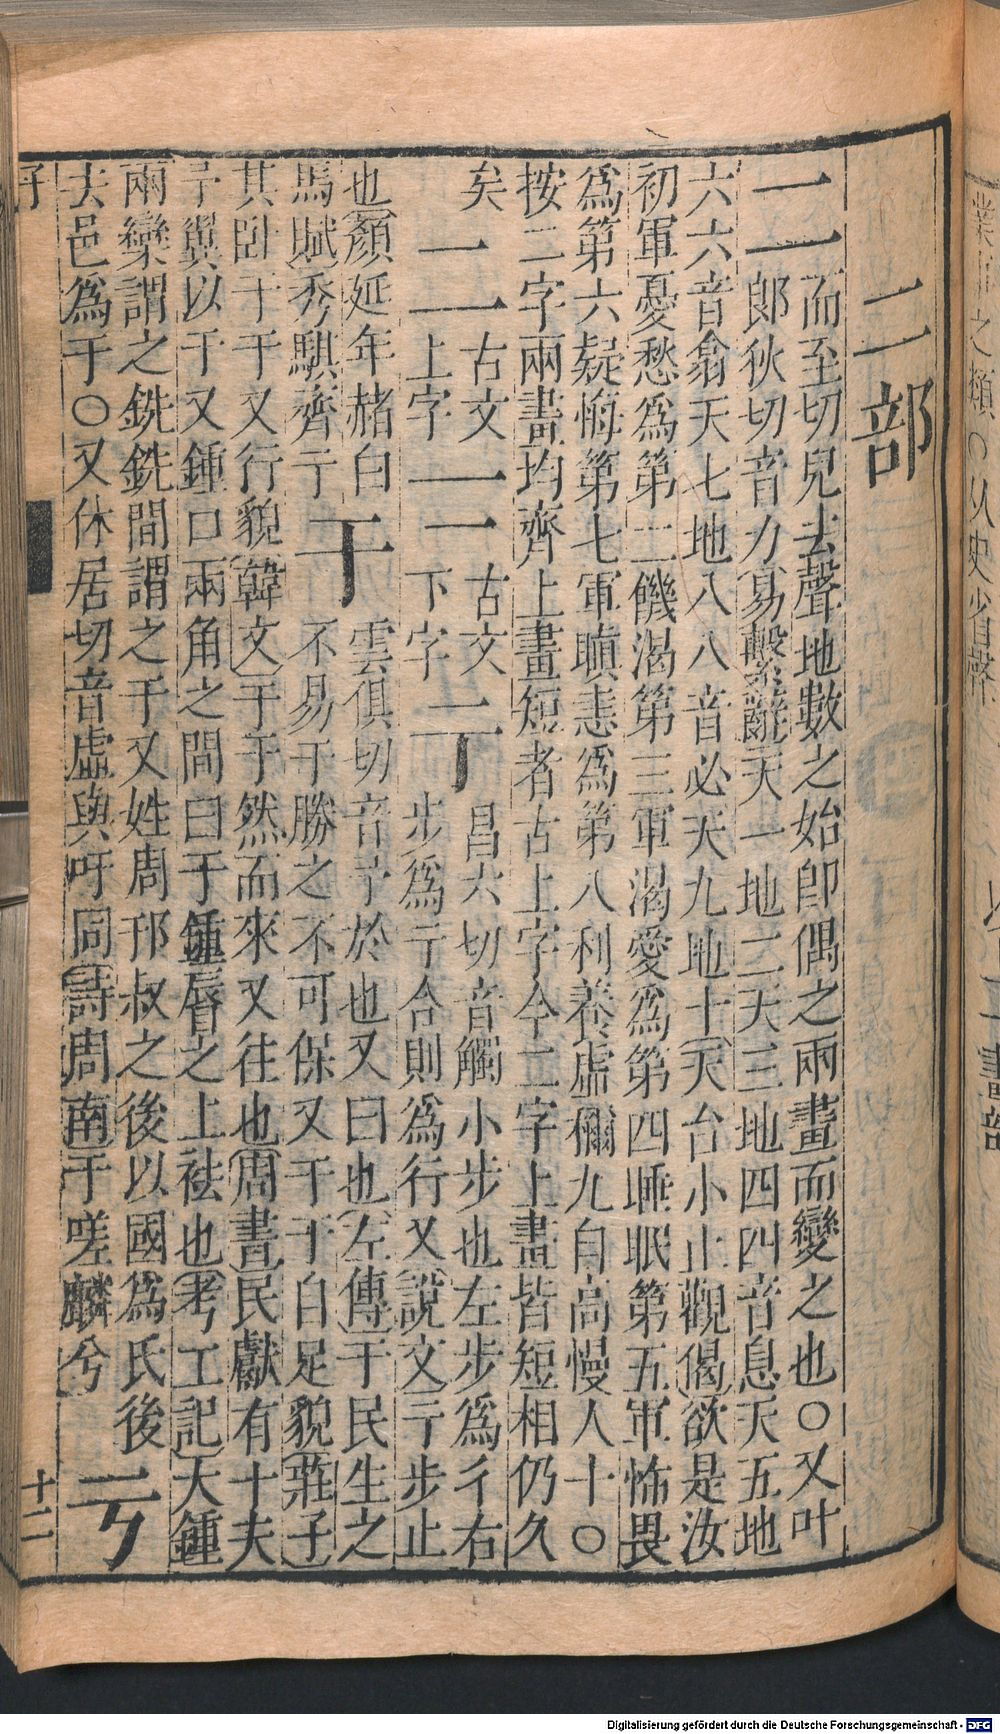 之類○从史省聲
二部
二而至切兒去聲地數之始卽偶之兩畫而變之也○又叶
郞狄切音力易繫辭天一地二天三地四四音息天五地
六六音翁天七地八八音必天九地十天台小止觀偈欲是汝
初軍憂愁爲第二饑渴第三軍渴愛爲第四睡眠第五軍怖畏
爲第六疑悔第七軍瞋恚爲第八利養虛稱九自高慢人十○
按二字兩畫均齊上畫短者古上字今二字上畫皆短相仍久
矣 二 古文 二 古文 亍 昌六切音觸小步也左步爲彳右
上字 下字 步爲亍合則爲行又說文亍步止
也顏延年赭白 于 雲俱切音予於也又曰也左傳于民生之
馬賦秀騏齊亍 不易于勝之不可保又于于自足貌莊子
其卧于于又行貌韓文于于然而來又往也周書民獻有十夫
予翼以于又鍾口兩角之間曰于鍾脣之上袪也考工記大鍾
兩欒謂之銑銑間謂之于又姓周邘叔之後以國爲氏後
去邑爲于○又休居切音虛與吁同詩周南于嗟麟兮 亏
十二
Digitalisierung gefördert durch die Deutsche Forschungsgemeinschaft - DFG